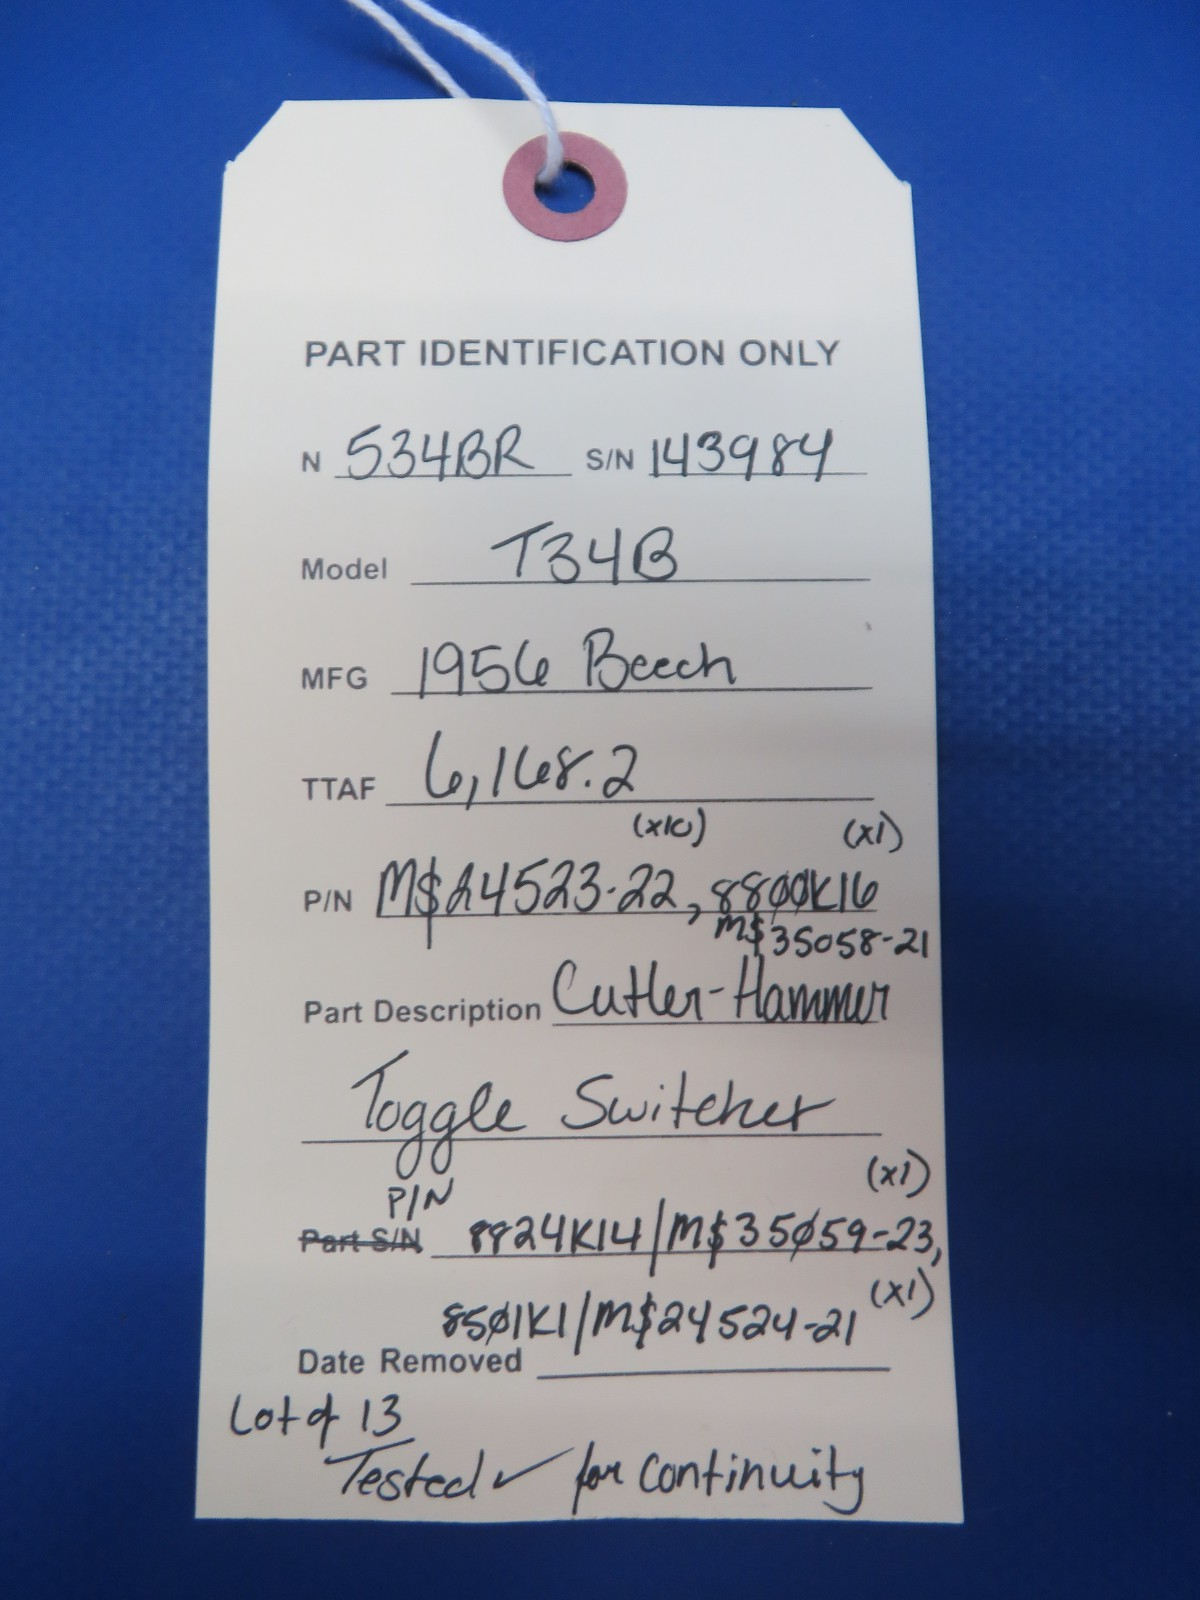 PART IDENTIFICATION ONLY
N 534BR S/N 143984
Model T34B
MFG 1956 Beech
TTAF 6,168.2
(x10) (x1)
P/N M$24523-22, 88ØØK16
M$35058-21
Part Description Cutler-Hammer
Toggle Switches
P/N (x1)
Part S/N 8824K14/M$35Ø59-23,
85Ø1K1/M$24524-21 (x1)
Date Removed
Lot of 13
Tested ✓ for continuity